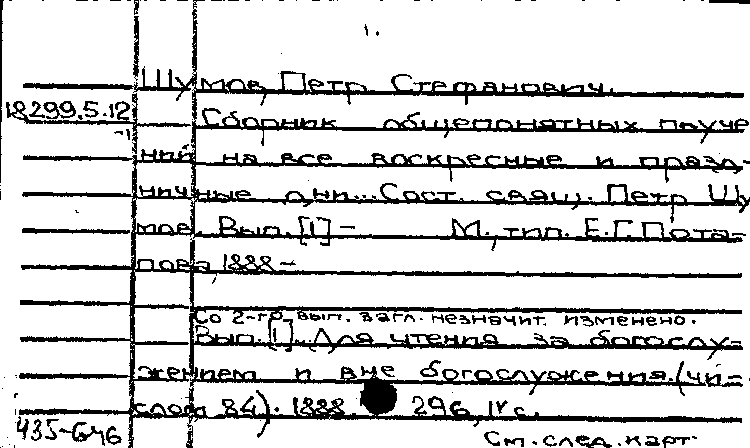 1.
Шумов, Петр Стефанович.
18.299.5.12
-1
Сборник общепонятных поуче
ний на все воскресные и празд-
ничные дни... Сост. свящ. Петр Шу
мов. Вып. [I] - М., тип. Е.Г. Пота-
пова, 1888-
Со 2-го вып. загл. незначит. изменено.
Вып. [I]. Для чтения за богослу-
жением и вне богослужения. (чи-
слом 84). 1888. 296, IV с.
435-646
См. след. карт.